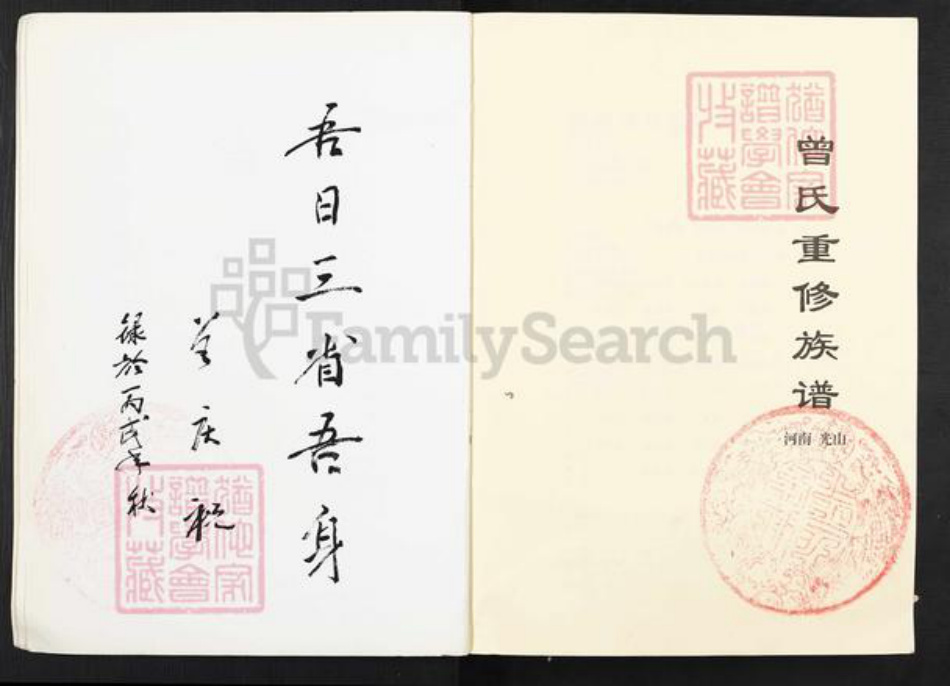 吾日三省吾身
曾庆祝
录於丙戌年秋
曾氏重修族谱
河南 光山
譜學會
收藏
譜學會
收藏
FamilySearch